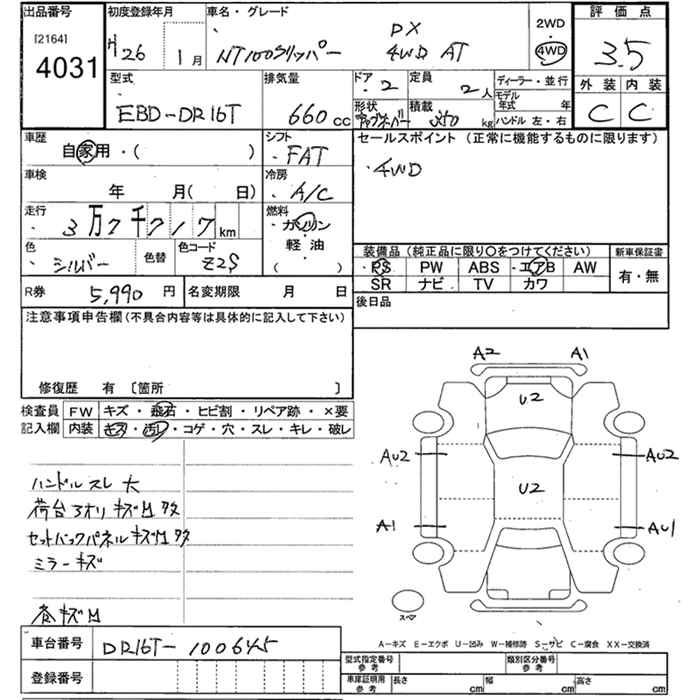 出品番号 初度登録年月 車名・グレード 2WD 評価点
[2164] 4031 H26 1月 NT100クリッパー DX 4WD AT 4WD 3.5
型式 排気量 ドア 2 定員 2人 ディーラー・並行 外装 内装
EBD-DR16T 660cc 形状 積載 350kg モデル年式 年 C C
ハンドル 左・右
車歴 自家用・( ) シフト FAT セールスポイント (正常に機能するものに限ります)
車検 年 月( 日) 冷房 A/C ・4WD
走行 3万7千717km 燃料 ガソリン
色 シルバー 色替 色コード Z2S 軽油 ( )
装備品 (純正品に限り○をつけてください) 新車保証書
PS PW ABS エアB AW 有・無
SR ナビ TV カワ
R券 5,990円 名変期限 月 日 後日品
注意事項申告欄 (不具合内容等は具体的に記入して下さい)
修復歴 有 [箇所 ]
検査員 FW キズ・飛石・ヒビ割・リペア跡・×要
記入欄 内装 キズ・汚レ・コゲ・穴・スレ・キレ・破レ
A2 A1
U2
AU2 AU2
U2
A1 AU1
スペア
ハンドルスレ大
荷台3オリキズM多
セットバックパネルキズM多
ミラーキズ
各キズM
A-キズ E-エクボ U-凹み W-補修跡 S-サビ C-腐食 XX-交換済
車台番号 DR16T-100645 型式指定番号 参考 類別区分番号 参考
登録番号 車庫証明用 参考 長さ cm 幅 cm 高さ cm